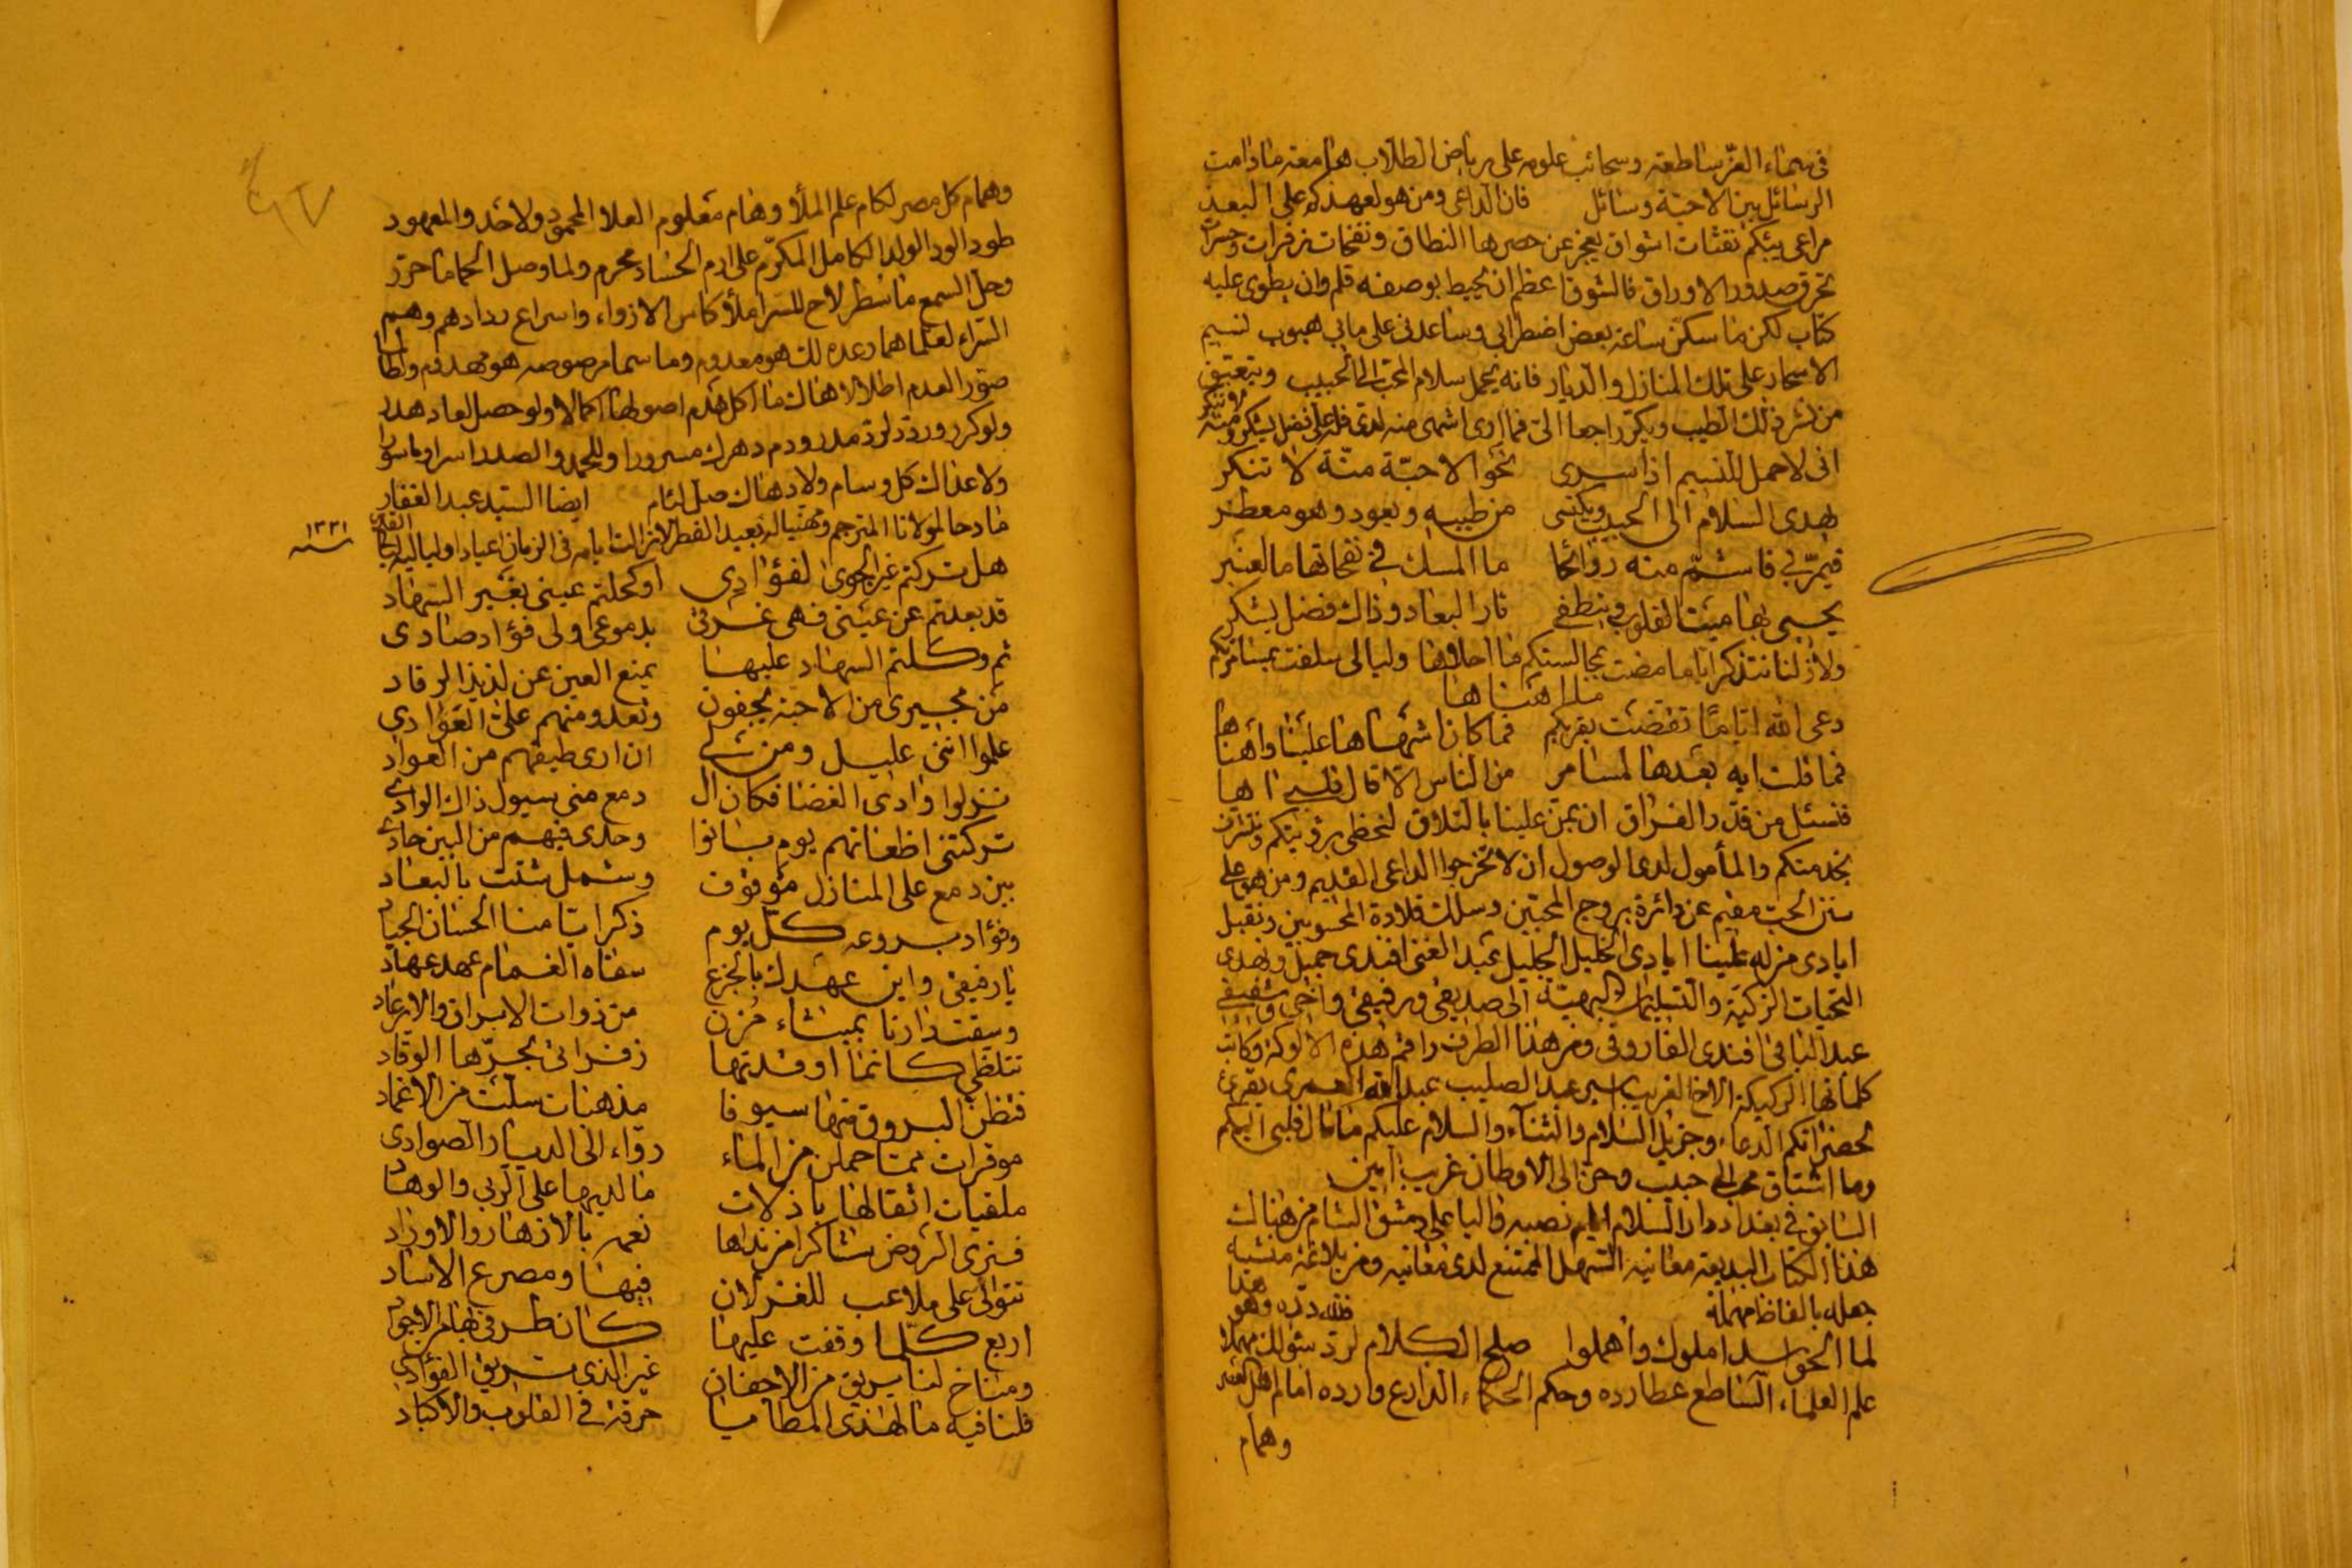 في سماء العز ساطعة وسحائب علومه على رياض الطلاب هامعة مادامت
الرسائل بين الاحبة وسائل فان الداعي ومن هو لعهدكم على البعد
مراعي يبثكم نفثات اشواق يعجز عن حصرها النطاق ونفحات زفرات وحسرات
تحرق صدور الاوراق فالشوق اعظم ان يحيط بوصفه قلم وان يطوى عليه
كتاب لكن ما سكن ساعة بعض اضطرابي وساعدني على مابي هبوب نسيم
الاسحار على تلك المنازل والديار فانه يحمل سلام المحب الى الحبيب
من نشر ذلك الطيب ويكر راجعا الي فما ارى اشهى منه لدي فله علي فضل يشكر ومنة
اني لاحمل للنسيم اذا سرى نحو الاحبة منة لا تنكر
يهدى السلام الى الحبيب ويكتسى من طيبه ويعود وهو معطر
فيمر بي فاشتم منه روائحا ما المسك في نفحاتها ما العنبر
يحيى بها ميت القلوب وينطفى نار البعاد وذاك فضل يشكر
ولازلنا نتذكر اياما مضت بمجالستكم ما احلاها وليالي سلفت
ما اهناها
رعى الله اياما تقضت بقربكم فما كان اشهاها علينا وأهناها
فما قلت ايه بعدها لمسامر من الناس الا قال قلبي اها
فنسئل من قدر الفراق ان يمن علينا بالتلاق لنحظى برؤيتكم ونتشرف
بخدمتكم والمأمول لدى الوصول ان لا تخرجوا الداعي القديم ومن هو على
سنن الحب مقيم عن دائرة بروج المحبين وسلك قلادة المحسوبين ونقبل
ايادي من له علينا ايادي الخليل الجليل عبد الغني افندي جميل ونهدي
التحيات الزكية والتسليمات البهية الى صديقي ورفيقي واخي وشفيقي
عبد الباقي افندي الفاروقي ومن هذا الطرف راقم هذه الالوكة وكاتب
كلماتها الركيكة الاخ الغريب اسير عبد الصليب عبد الله العمري يقرئ
لحضراتكم الدعاء وجزيل السلام والثناء والسلام عليكم ما مال قلبي اليكم
وما اشتاق محب الى حبيب وحن الى الاوطان غريب امين
السابق في بغداد دار السلام نصبه واليا على دمشق الشام من هناك
هذا الكتاب البديعة معانيه السهل الممتنع لدى معانيه ومن بلاغة منشيه
جعله بالفاظ مهملة فلله دره وهو هذا
لما الحواسد املوك وأهملوا صلح الكلام لرد سئولك مهملا
علم العلماء الساطع عطارده وحكم الحكماء الدارع وارده امام اهل العصر
وهمام
وهمام كل مصر لكام علم الملأ وهام معلوم العلا المحمود ولاحد والمعهود
طود الود الولد الكامل المكرم على ادم الحساد محرم ولما وصل الحاما حرر
وحل السمع ما سطر لاح للسر املأ كاس الارواء واسراع ردادهم وهم
السراء لعلما هما رعده لك هو معدوم وما سما مرصوصه هو مهدوم ولطالما
صور العدم اطلالا هاك ما اكل هدم اصولها اكمالا ولو حصل لعاد هدر
ولو كرر وردد لرد مدرودم دهرك مسرورا وللحمد والصدد
ولا عداك كل وسام ولا دهاك صل لئام ايضا السيد عبد الغفار
مادحا لمولانا المترجم ومهنيا له بعيد الفطر لازالت ايامه في الزمان اعيادا ولياليه
١٢٣١ سنة
هل تركتم غير الجوى لفؤادي او كحلتم عيني بغير السهاد
قد بعدتم عن عيني فهي غرقى بدموعي ولي فؤاد صادى
ثم وكلتم السهاد عليها يمنع العين عن لذيذ الرقاد
من مجيري من الاحبة يجفون وتعدو منهم علي العوادي
علموا انني عليل ومن لي ان ارى طيفهم من العواد
نزلوا وادى الغضا فكان ال دمع مني سيول ذاك الوادي
تركتني اظعانهم يوم بانوا وحدى فيهم من البين حادي
بين دمع على المنازل موقوف وشمل شتت بالبعاد
وفؤاد يروعه كل يوم ذكر ايامنا الحسان الجياد
يا رفيقي واين عهدك بالجزع سقاه الغمام عهد عهاد
وسقت دارنا بميثاء مزن من ذوات الابراق والارعاد
تتلظى كانما اوقدتها زفراتي بحرها الوقاد
فتظن البروق منها سيوفا مذهبات سلت من الاغماد
موقرات مما حملن من الماء رواء الى الديار الصوادي
ملقيات اثقالها باذلات ما لديها على الربى والوهاد
فترى الروض شاكرا من نداها نعم بالازهار والاوراد
تتوالى على ملاعب للغزلان فيها ومصرع الاساد
اربع كلما وقفت عليها كان طرفي بها من الاجواد
ومناخ لنا يريق من الاجفان غير الذي يريق الفؤادي
قلنا فيه ما لهذي المطايا حرقة في القلوب والاكباد